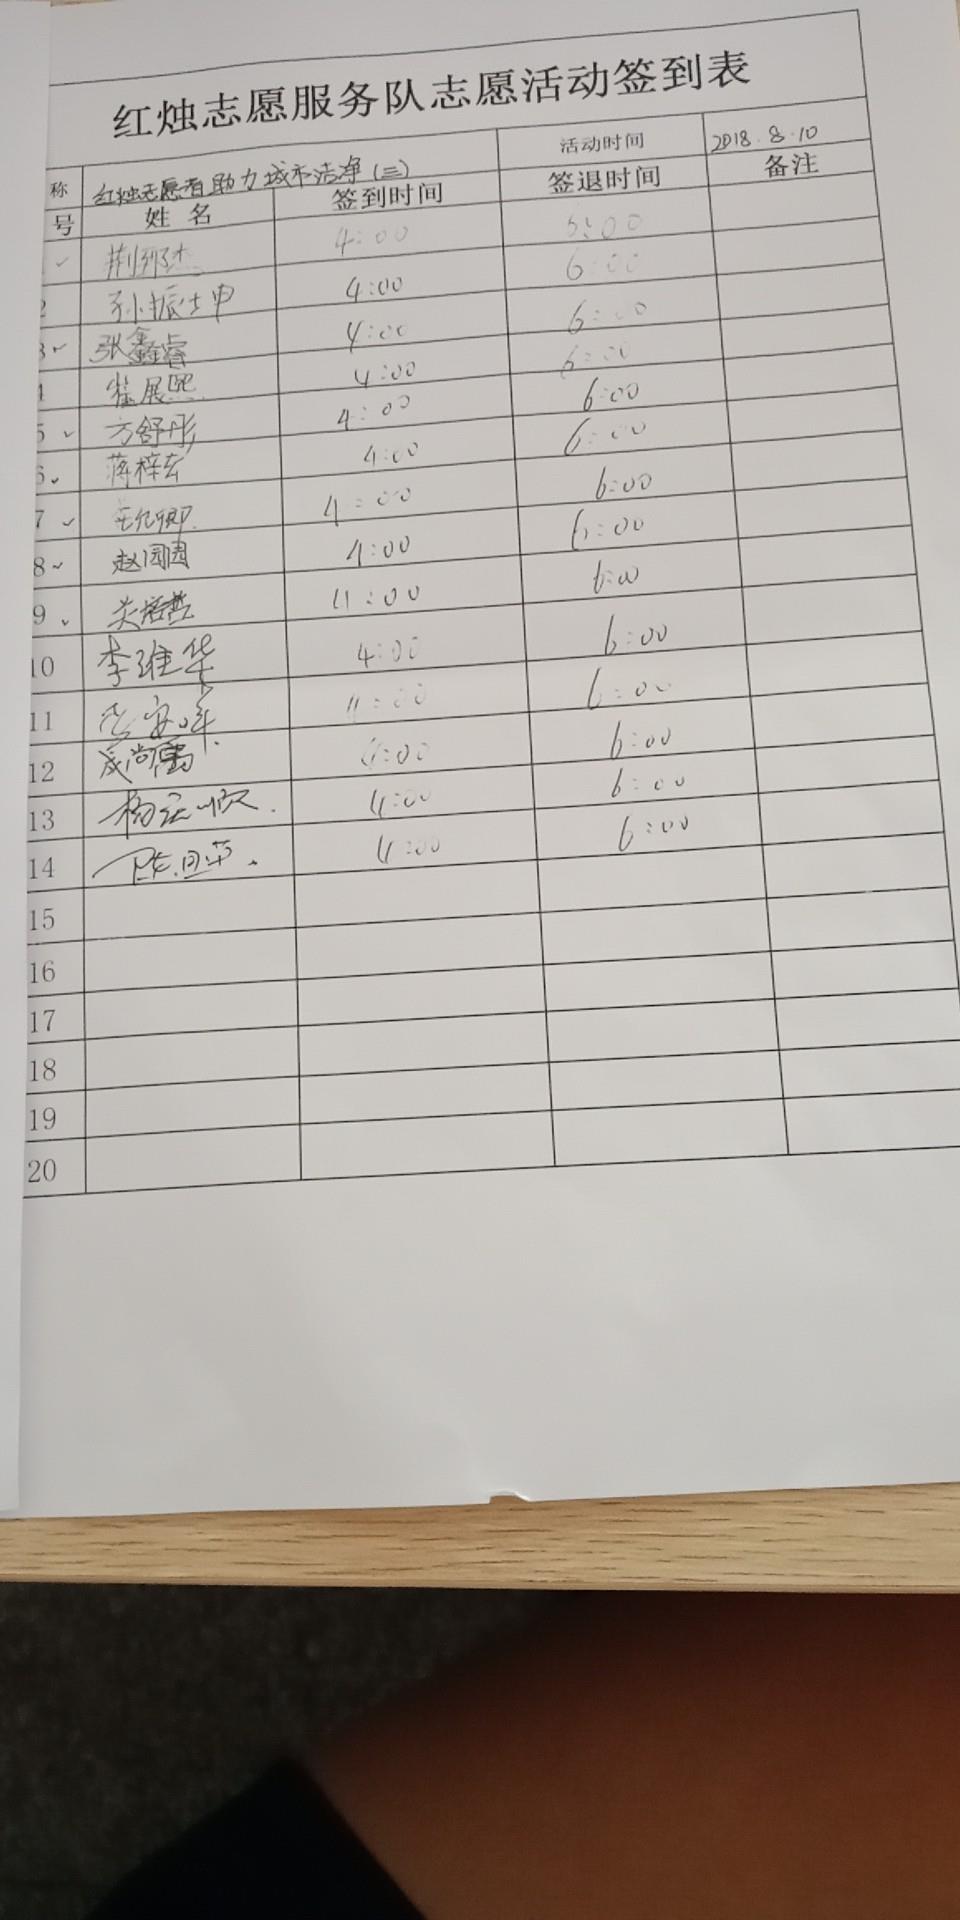 红烛志愿服务队志愿活动签到表
称 红烛志愿者助力城市洁净(三) 活动时间 2018.8.10
号 姓名 签到时间 签退时间 备注
✓ 4:00 6:00
2 孙振坤 4:00 6:00
3 ✓ 张鑫睿 4:00 6:00
崔展熙 4:00 6:00
5 ✓ 方舒彤 4:00 6:00
6 ✓ 蒋梓玄 4:00 6:00
7 ✓ 4:00 6:00
8 ✓ 赵园园 4:00 6:00
9 ✓ 4:00 6:00
10 李维华 4:00 6:00
11 4:00 6:00
12 4:00 6:00
13 4:00 6:00
14 4:00 6:00
15
16
17
18
19
20